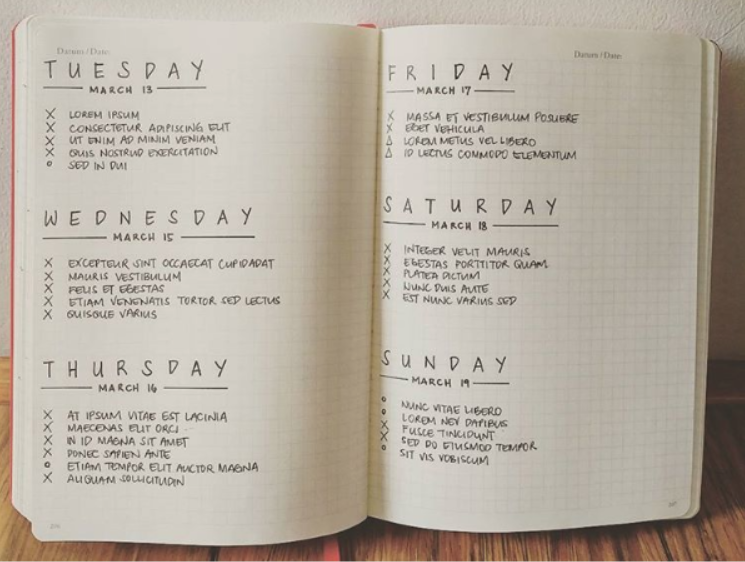 Datum / Date:
TUESDAY
MARCH 13
X LOREM IPSUM
X CONSECTETUR ADIPISCING ELIT
X UT ENIM AD MINIM VENIAM
X QUIS NOSTRUD EXERCITATION
o SED IN DUI
WEDNESDAY
MARCH 15
X EXCEPTEUR SINT OCCAECAT CUPIDADAT
X MAURIS VESTIBULUM
X FELIS ET EGESTAS
X ETIAM VENENATIS TORTOR SED LECTUS
X QUISQUE VARIUS
THURSDAY
MARCH 16
X AT IPSUM VITAE EST LACINIA
X MAECENAS ELIT ORCI
X IN ID MAGNA SIT AMET
X DONEC SAPIEN ANTE
o ETIAM TEMPOR ELIT AUCTOR MAGNA
X ALIQUAM SOLLICITUDIN
Datum / Date:
FRIDAY
MARCH 17
X MASSA ET VESTIBULUM POSUERE
X EGET VEHICULA
Δ LOREM METUS VEL LIBERO
Δ ID LECTUS COMMODO ELEMENTUM
SATURDAY
MARCH 18
X INTEGER VELIT MAURIS
X EGESTAS PORTTITOR QUAM
X PLATEA DICTUM
X NUNC DUIS AUTE
X EST NUNC VARIUS SED
SUNDAY
MARCH 19
o NUNC VITAE LIBERO
o LOREM NEV DAPIBUS
X FUSCE TINCIDUNT
X SED DO EIUSMOD TEMPOR
o SIT VIS VOBISCUM